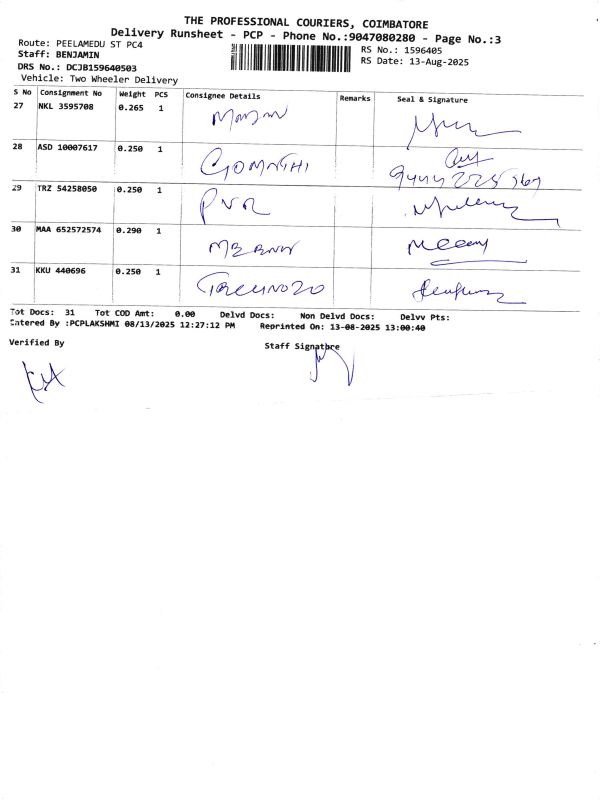 THE PROFESSIONAL COURIERS, COIMBATORE
Delivery Runsheet - PCP - Phone No.:9047080280 - Page No.:3
Route: PEELAMEDU ST PC4
Staff: BENJAMIN
DRS No.: DCJB159640503
Vehicle: Two Wheeler Delivery
RS No.: 1596405
RS Date: 13-Aug-2025
S No Consignment No Weight PCS Consignee Details Remarks Seal & Signature
27 NKL 3595708 0.265 1
28 ASD 10007617 0.250 1 GOMATHI
29 TRZ 54258050 0.250 1 PVR
30 MAA 652572574 0.290 1
31 KKU 440696 0.250 1
Tot Docs: 31 Tot COD Amt: 0.00 Delvd Docs: Non Delvd Docs: Delvv Pts:
Entered By :PCPLAKSHMI 08/13/2025 12:27:12 PM Reprinted On: 13-08-2025 13:00:40
Verified By
Staff Signature